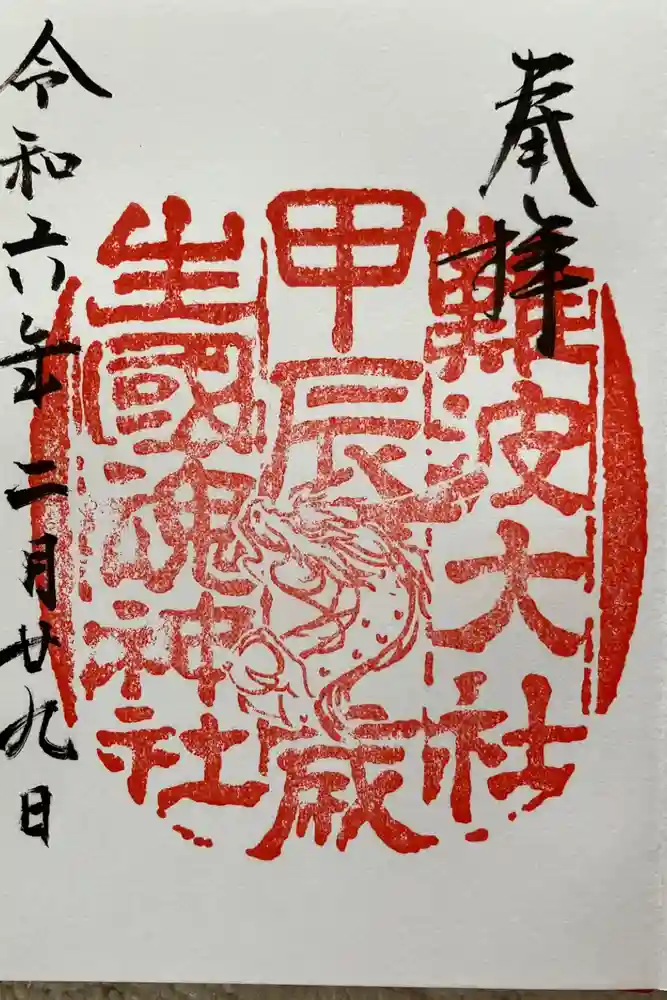 奉拝
難波大社
甲辰歳
生國魂神社
令和六年二月廿九日